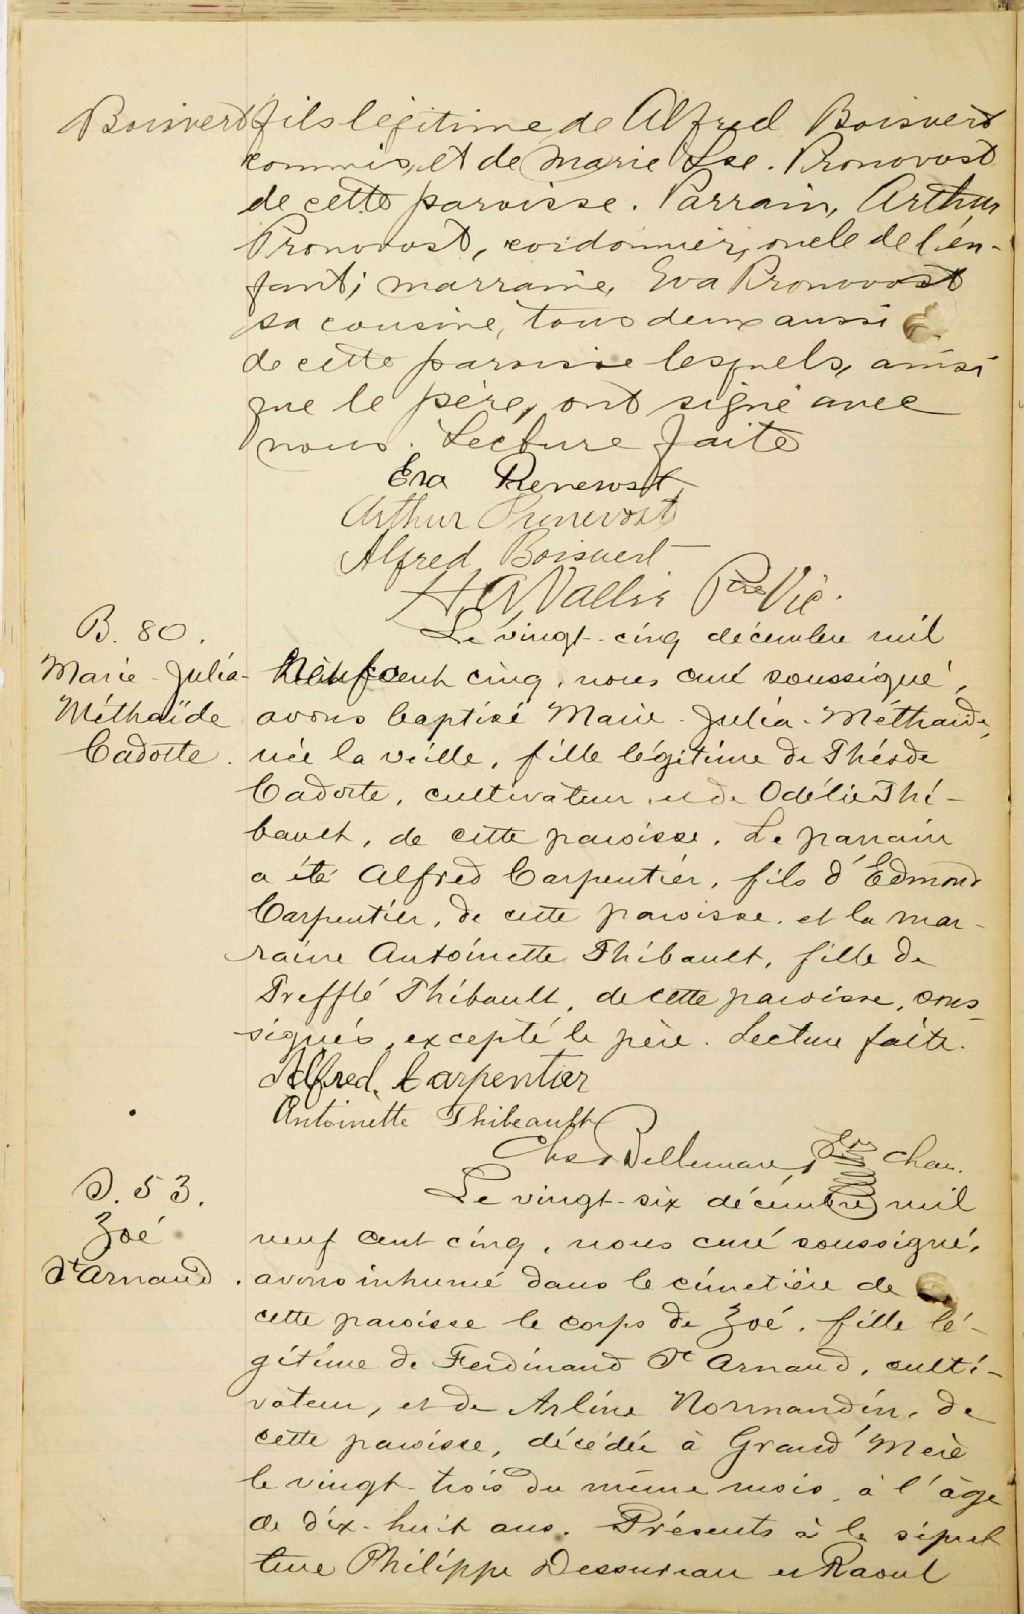 Boisvert fils légitime de Alfred Boisvert
commis, et de Marie Lse. Pronovost
de cette paroisse. Parrain, Arthur
Pronovost, cordonnier, oncle de l'en-
fant; marraine, Eva Pronovost
sa cousine, tous deux aussi
de cette paroisse lesquels, ainsi
que le père, ont signé avec
nous. Lecture faite
Eva Pronovost
Arthur Pronovost
Alfred Boisvert
H. A. Vallée Ptre Vic.
B. 80.
Marie-Julia-
Méthaïde
Cadotte.
Le vingt-cinq décembre mil
neuf cent cinq, nous curé soussigné,
avons baptisé Marie-Julia-Méthaïde,
née la veille, fille légitime de Théode
Cadotte, cultivateur et de Odélie Thi-
bault, de cette paroisse. Le parrain
a été Alfred Carpentier, fils d'Edmond
Carpentier, de cette paroisse, et la mar-
raine Antoinette Thibault, fille de
Trefflé Thibault, de cette paroisse, sous-
signés, excepté le père. Lecture faite.
Alfred Carpentier
Antoinette Thibeault
Chs Bellemare, chan.
S. 53.
Zoé
St Arnaud.
Le vingt-six décembre mil
neuf cent cinq, nous curé soussigné,
avons inhumé dans le cimetière de
cette paroisse le corps de Zoé, fille lé-
gitime de Ferdinand St Arnaud, culti-
vateur, et de Arline Normandin, de
cette paroisse, décédée à Grand'Mère
le vingt-trois du même mois, à l'âge
de dix-huit ans. Présents à la sépul
ture Philippe Dessureau et Raoul